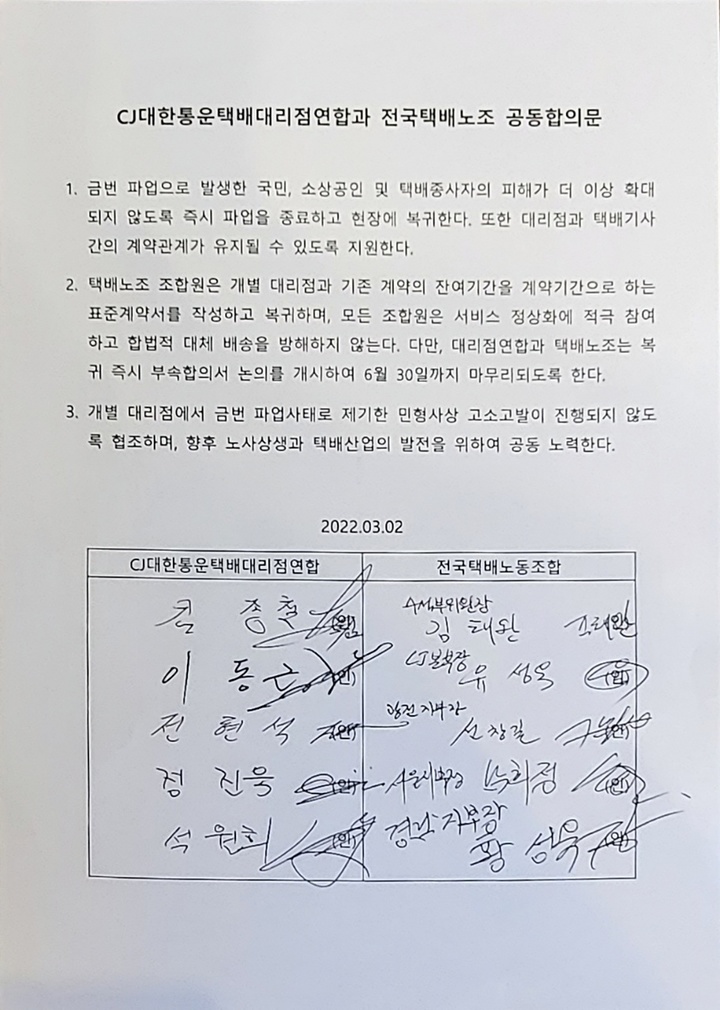 CJ대한통운택배대리점연합과 전국택배노조 공동합의문
1. 금번 파업으로 발생한 국민, 소상공인 및 택배종사자의 피해가 더 이상 확대
되지 않도록 즉시 파업을 종료하고 현장에 복귀한다. 또한 대리점과 택배기사
간의 계약관계가 유지될 수 있도록 지원한다.
2. 택배노조 조합원은 개별 대리점과 기존 계약의 잔여기간을 계약기간으로 하는
표준계약서를 작성하고 복귀하며, 모든 조합원은 서비스 정상화에 적극 참여
하고 합법적 대체 배송을 방해하지 않는다. 다만, 대리점연합과 택배노조는 복
귀 즉시 부속합의서 논의를 개시하여 6월 30일까지 마무리되도록 한다.
3. 개별 대리점에서 금번 파업사태로 제기한 민형사상 고소고발이 진행되지 않도
록 협조하며, 향후 노사상생과 택배산업의 발전을 위하여 공동 노력한다.
2022.03.02
CJ대한통운택배대리점연합 전국택배노동조합
김 종 철 (인) 수석부위원장
김 태완 (인)
이 동 (인) CJ본부장
유 성욱 (인)
전 현 석 (인) 지부장
(인)
정 진욱 (인) (인)
석 원희 (인) 지부장
황 성욱 (인)